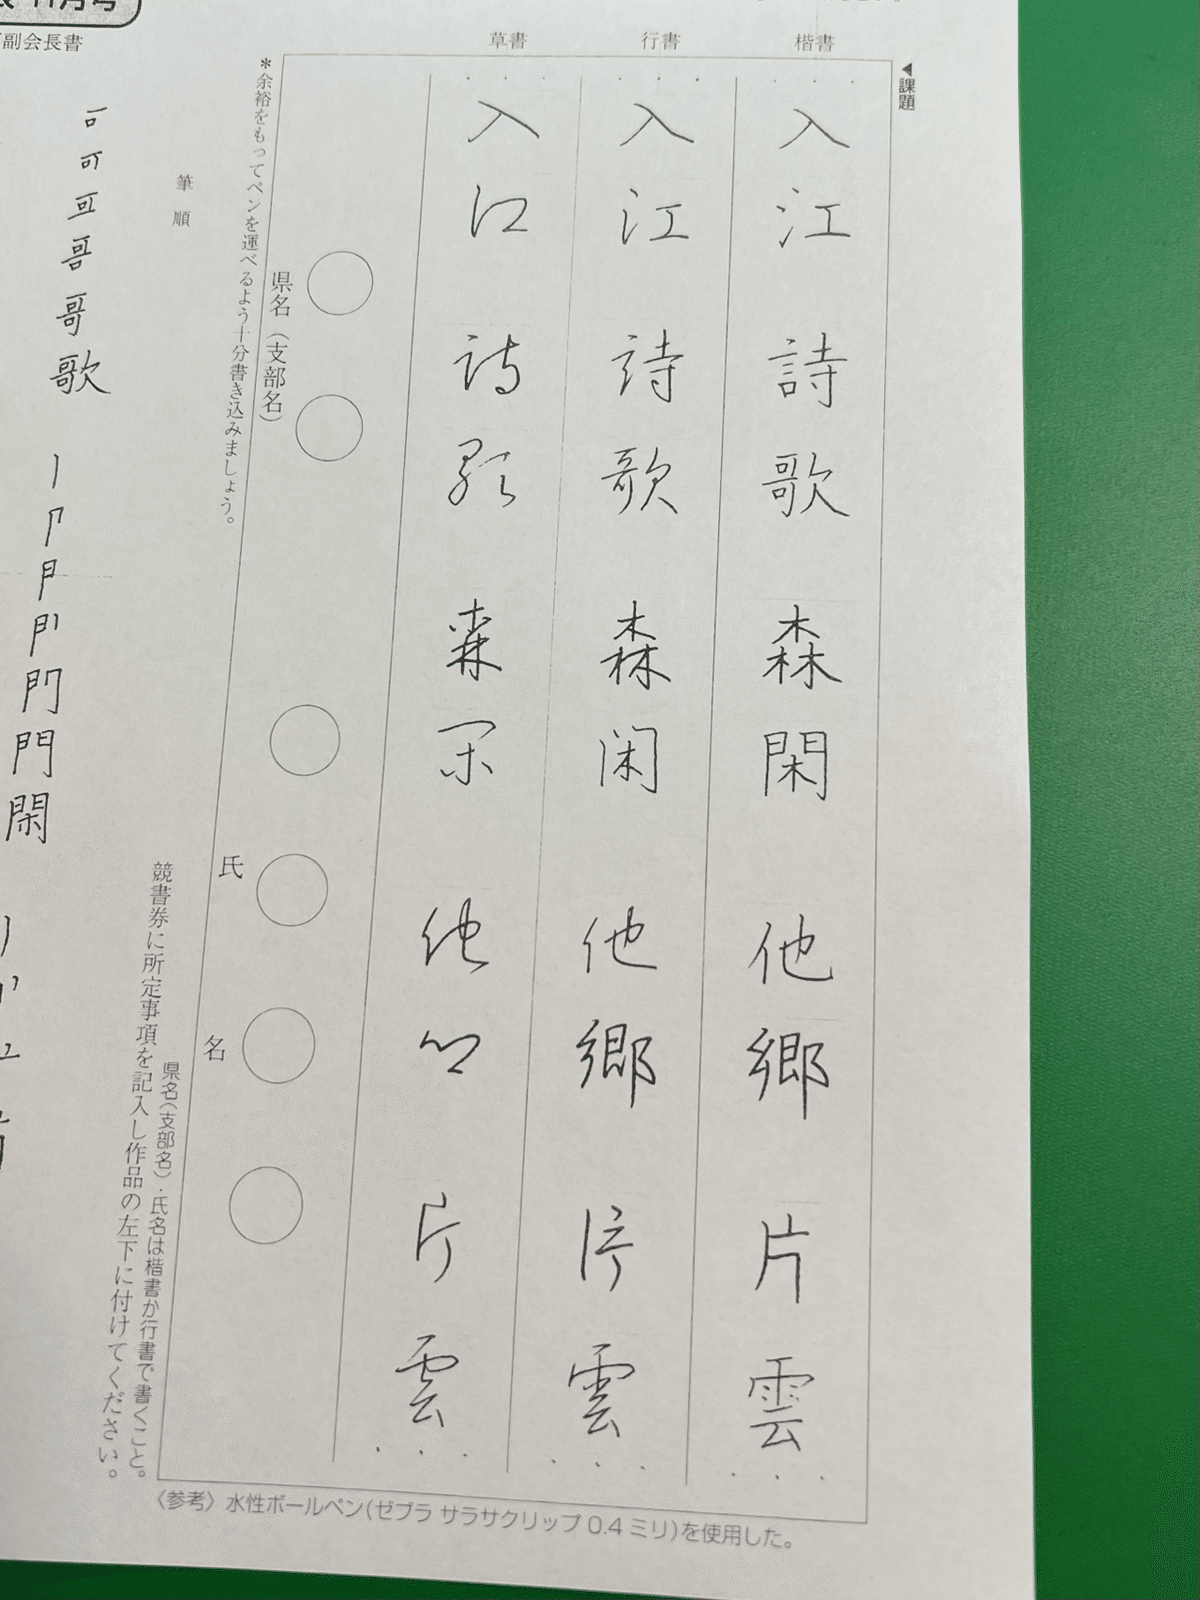 11月号
副会長書
◀課題
楷書
入江詩歌森閑他郷片雲
行書
入江詩歌森閑他郷片雲
草書
入江詩歌森閑他郷片雲
県名(支部名)
氏名
*余裕をもってペンを運べるよう十分書き込みましょう。
筆順
県名(支部名)・氏名は楷書か行書で書くこと。
競書券に所定事項を記入し作品の左下に付けてください。
哥歌
門門閑
〈参考〉水性ボールペン(ゼブラ サラサクリップ0.4ミリ)を使用した。